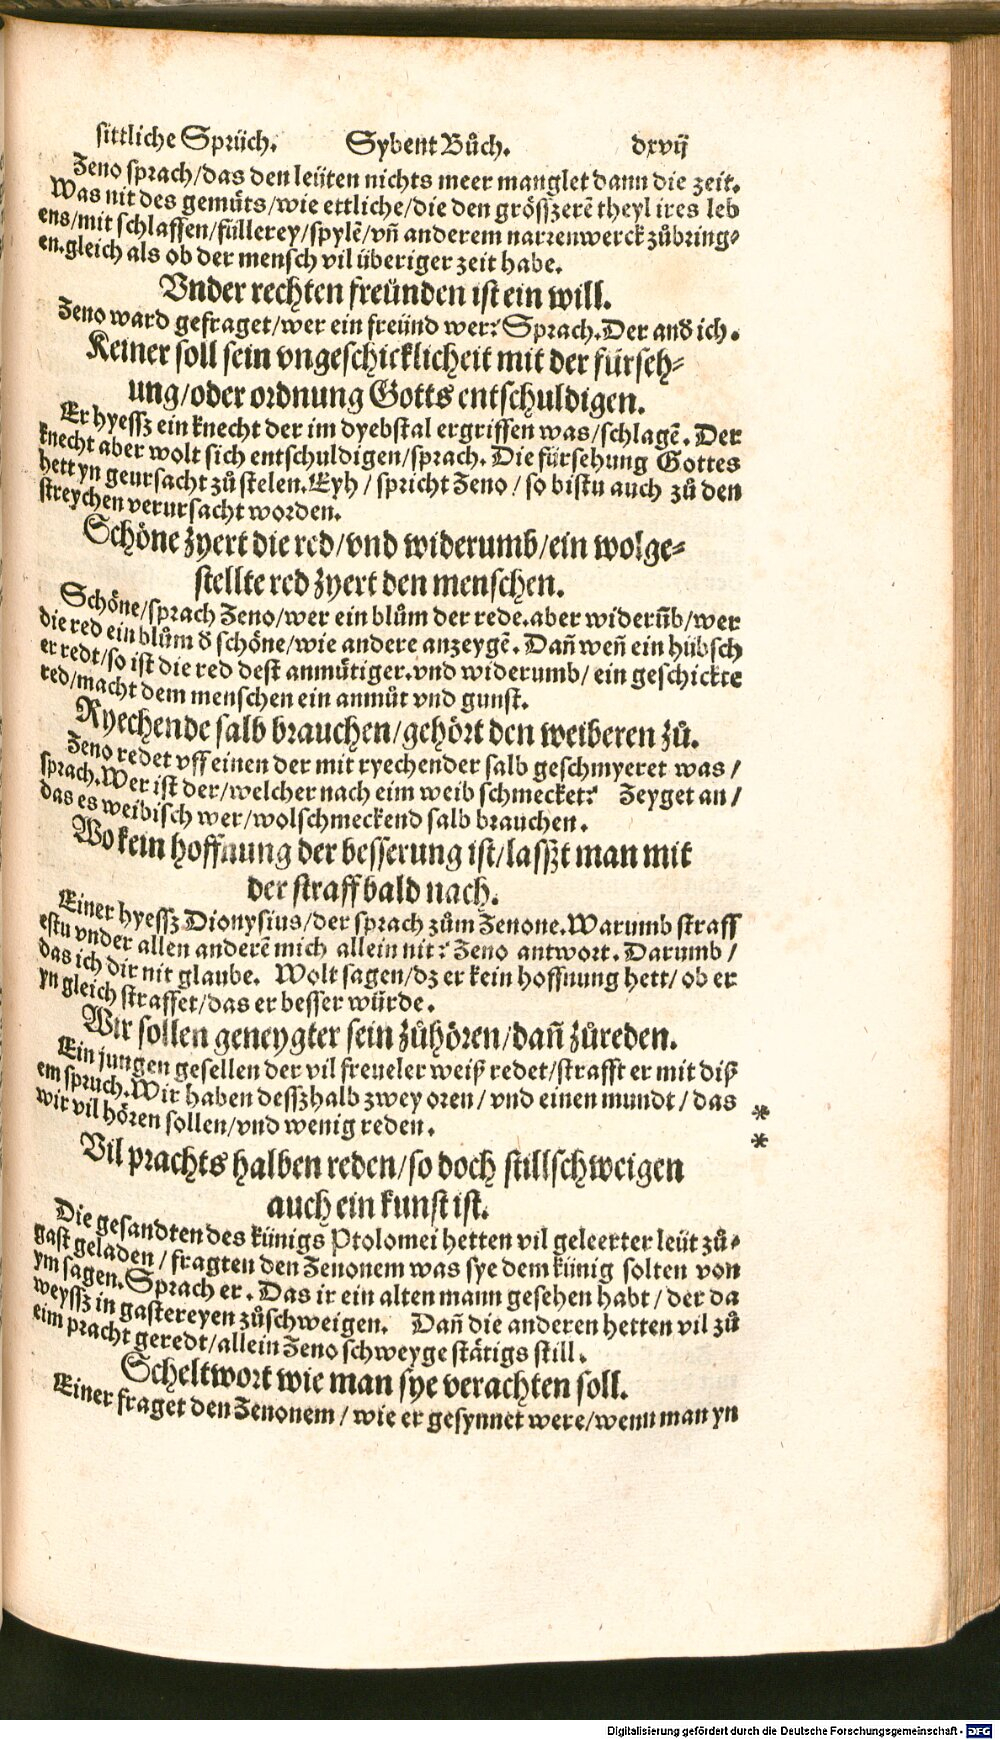 sittliche Sprüch. Sybent Bůch. dxvij
Zeno sprach/das den leüten nichts meer manglet dann die zeit.
Was nit des gemůts/wie ettliche/die den grösszerē theyl ires leb
ens/mit schlaffen/füllerey/spylē/vñ anderem narrenwerck zůbring⸗
en.gleich als ob der mensch vil überiger zeit habe.
Vnder rechten freünden ist ein will.
Zeno ward gefraget/wer ein freünd wer? Sprach.Der and ich.
Keiner soll sein vngeschicklicheit mit der fürseh⸗
ung/oder ordnung Gotts entschuldigen.
Er hyessz ein knecht der im dyebstal ergriffen was/schlagē. Der
knecht aber wolt sich entschuldigen/sprach. Die fürsehung Gottes
hett yn geursacht zů stelen.Eyh/spricht Zeno/so bistu auch zů den
streychen verursacht worden.
Schöne zyert die red/vnd widerumb/ein wolge⸗
stellte red zyert den menschen.
Schöne/sprach Zeno/wer ein blům der rede.aber widerūb/wer
die red ein blům d schöne/wie andere anzeygē. Dañ weñ ein hübsch
er redt/so ist die red dest anmůtiger.vnd widerumb/ein geschickte
red/macht dem menschen ein anmůt vnd gunst.
Ryechende salb brauchen/gehört den weiberen zů.
Zeno redet vff einen der mit ryechender salb geschmyeret was/
sprach.Wer ist der/welcher nach eim weib schmecket? Zeyget an/
das es weibisch wer/wolschmeckend salb brauchen.
Wo kein hoffnung der besserung ist/lasszt man mit
der straff bald nach.
Einer hyessz Dionysius/der sprach zům Zenone.Warumb straff
estu vnder allen anderē mich allein nit? Zeno antwort. Darumb/
das ich dir nit glaube. Wolt sagen/dz er kein hoffnung hett/ob er
yn gleich straffet/das er besser würde.
Wir sollen geneygter sein zůhören/dañ zůreden.
Ein jungen gesellen der vil freueler weiß redet/strafft er mit diß
em spruch.Wir haben desszhalb zwey oren/vnd einen mundt/das *
wir vil hören sollen/vnd wenig reden. *
Vil prachts halben reden/so doch stillschweigen
auch ein kunst ist.
Die gesandten des künigs Ptolomei hetten vil geleerter leüt zů⸗
gast geladen/fragten den Zenonem was sye dem künig solten von
ym sagen.Sprach er. Das ir ein alten mann gesehen habt/der da
weyssz in gastereyen zůschweigen. Dañ die anderen hetten vil zů
eim pracht geredt/allein Zeno schweyge stätigs still.
Scheltwort wie man sye verachten soll.
Einer fraget den Zenonem/wie er gesynnet were/wenn man yn
Digitalisierung gefördert durch die Deutsche Forschungsgemeinschaft - DFG